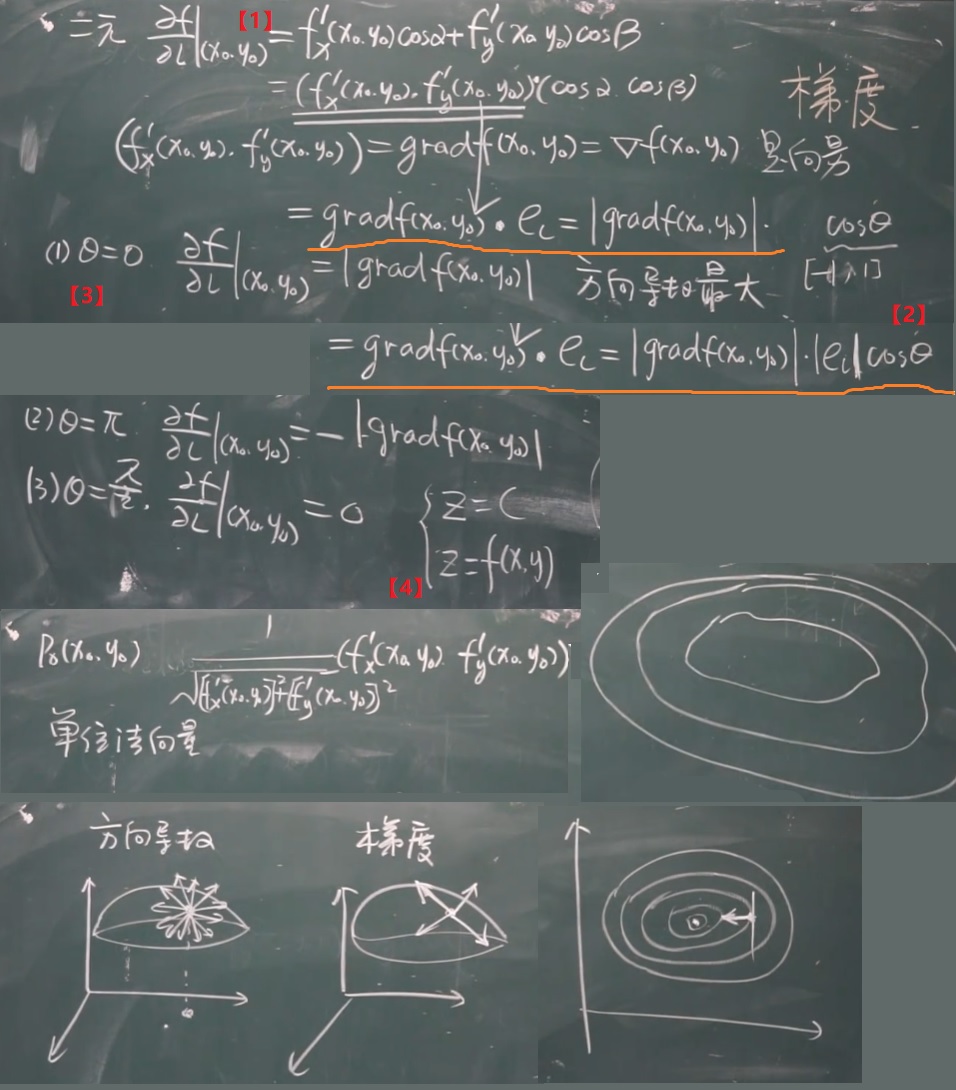 二元 ∂f/∂L|(x₀,y₀) 【1】= f'ₓ(x₀,y₀)cosα + f'ᵧ(x₀,y₀)cosβ
= (f'ₓ(x₀,y₀), f'ᵧ(x₀,y₀))·(cosα, cosβ)
梯度
(f'ₓ(x₀,y₀), f'ᵧ(x₀,y₀)) = gradf(x₀,y₀) = ▽f(x₀,y₀) 是向量
= gradf(x₀,y₀)·e_L = |gradf(x₀,y₀)|· cosθ
[-1,1]
(1) θ=0 ∂f/∂L|(x₀,y₀) = |gradf(x₀,y₀)| 方向导数最大
【3】
【2】
= gradf(x₀,y₀)·e_L = |gradf(x₀,y₀)|·|e_L|cosθ
(2) θ=π ∂f/∂L|(x₀,y₀) = -|gradf(x₀,y₀)|
(3) θ=π/2, ∂f/∂L|(x₀,y₀) = 0
{z=C
z=f(x,y)
【4】
P₀(x₀,y₀) 1/√([f'ₓ(x₀,y₀)]²+[f'ᵧ(x₀,y₀)]²) (f'ₓ(x₀,y₀), f'ᵧ(x₀,y₀))
单位法向量
方向导数
梯度